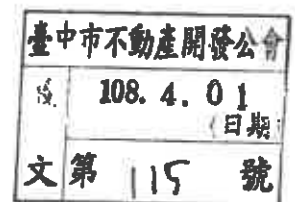 臺中市不動產開發公會
收 108. 4. 01
(日期)
文 第 115 號